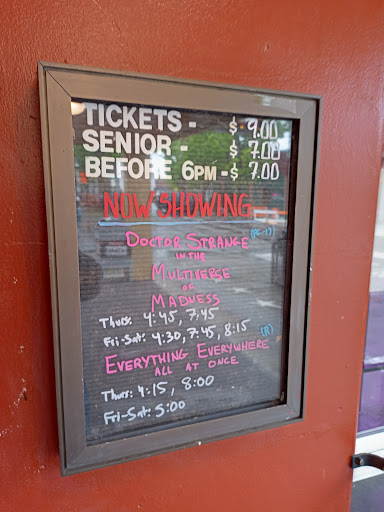 TICKETS - $ 9.00
SENIOR - $ 7.00
BEFORE 6PM - $ 7.00
NOW SHOWING
DOCTOR STRANGE
IN THE
MULTIVERSE
OF
MADNESS
Thurs: 4:45, 7:45
Fri-Sat: 4:30, 7:45, 8:15
EVERYTHING EVERYWHERE (R)
ALL AT ONCE
Thurs: 4:15, 8:00
Fri-Sat: 5:00